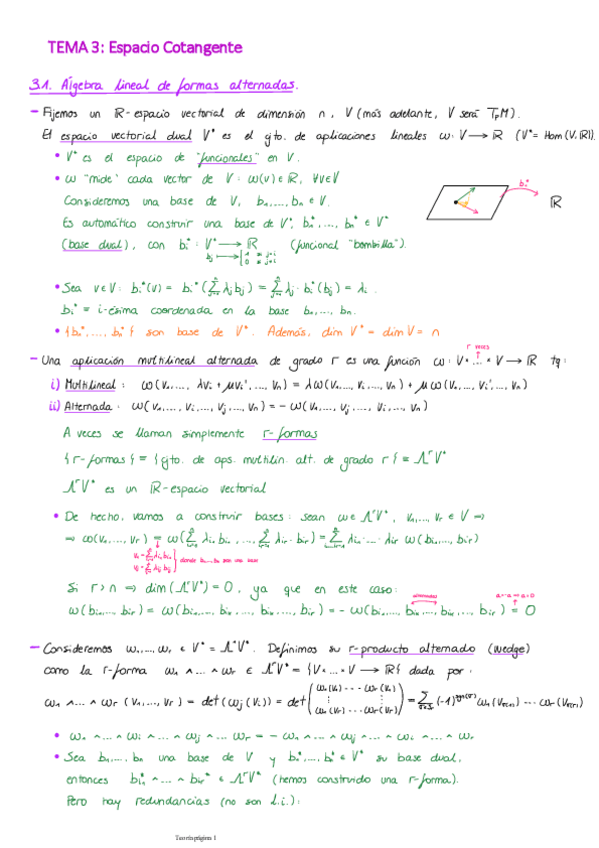 TEMA 3: Espacio Cotangente
3.1. Álgebra lineal de formas alternadas.
- Fijemos un ℝ-espacio vectorial de dimensión n, V (más adelante, V será TpM).
El espacio vectorial dual V* es el cjto. de aplicaciones lineales ω: V → ℝ (V* = Hom(V, ℝ)).
• V* es el espacio de "funcionales" en V.
• ω "mide" cada vector de V: ω(v) ∈ ℝ, ∀v ∈ V
Consideremos una base de V, b₁, ..., bₙ ∈ V.
bᵢ*
ℝ
Es automático construir una base de V*, b₁*, ..., bₙ* ∈ V*
(base dual), con bᵢ*: V* → ℝ (funcional "bombilla").
bⱼ ↦ { 1 si j=i
0 si j≠i
• Sea v ∈ V: bᵢ*(v) = bᵢ*(Σ λⱼbⱼ) = Σ λⱼ · bᵢ*(bⱼ) = λᵢ.
bᵢ* ≡ i-ésima coordenada en la base b₁, ..., bₙ.
• {b₁*, ..., bₙ*} son base de V*. Además, dim V* = dim V = n
r veces
- Una aplicación multilineal alternada de grado r es una función ω: V × ... × V → ℝ tq:
i) Multilineal: ω(v₁, ..., λvᵢ + μvᵢ', ..., vₙ) = λω(v₁, ..., vᵢ, ..., vₙ) + μω(v₁, ..., vᵢ', ..., vₙ)
ii) Alternada: ω(v₁, ..., vᵢ, ..., vⱼ, ..., vₙ) = -ω(v₁, ..., vⱼ, ..., vᵢ, ..., vₙ)
A veces se llaman simplemente r-formas
{r-formas} = {cjto. de aps. multilin. alt. de grado r} ≡ ΛʳV*
ΛʳV* es un ℝ-espacio vectorial
• De hecho, vamos a construir bases: sean ω ∈ ΛʳV*, v₁, ..., vᵣ ∈ V ⇒
⇒ ω(v₁, ..., vᵣ) = ω(Σ λᵢ₁ bᵢ₁, ..., Σ λᵢᵣ bᵢᵣ) = Σ λᵢ₁ ... λᵢᵣ ω(bᵢ₁, ..., bᵢᵣ)
donde b₁, ..., bₙ son una base
Si r > n ⇒ dim(ΛʳV*) = 0, ya que en este caso:
alternadas
a = -a ⇒ a = 0
ω(bᵢ₁, ..., bᵢᵣ) = ω(bᵢ₁, ..., bᵢₖ, ..., bᵢₖ, ..., bᵢᵣ) = -ω(bᵢ₁, ..., bᵢₖ, ..., bᵢₖ, ..., bᵢᵣ) = 0
- Consideremos ω₁, ..., ωᵣ ∈ V* = Λ¹V*. Definimos su r-producto alternado (wedge)
como la r-forma ω₁ ∧ ... ∧ ωᵣ ∈ ΛʳV* = {V × ... × V → ℝ} dada por:
ω₁ ∧ ... ∧ ωᵣ (v₁, ..., vᵣ) = det(ωⱼ(vᵢ)) = det( ω₁(v₁) ... ωᵣ(v₁) ⋮ ⋮ ω₁(vᵣ) ... ωᵣ(vᵣ) ) = Σ (-1)^sgn(σ) ω₁(vσ(1)) ... ωᵣ(vσ(r))
• ω₁ ∧ ... ∧ ωᵢ ∧ ... ∧ ωⱼ ∧ ... ωᵣ = - ω₁ ∧ ... ∧ ωⱼ ∧ ... ∧ ωᵢ ∧ ... ∧ ωᵣ
• Sea b₁, ..., bₙ una base de V y b₁*, ..., bₙ* ∈ V* su base dual,
entonces bᵢ₁* ∧ ... ∧ bᵢᵣ* ∈ ΛʳV* (hemos construido una r-forma).
Pero hay redundancias (no son l.i.):